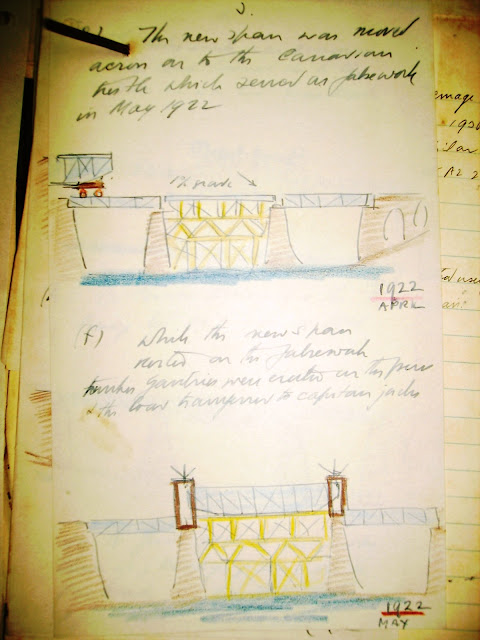 3.
(e) The new span was moved
across on to the Canadian
trestle which served as falsework
in May 1922
1% grade
1922
APRIL
(f) While the new span
rested on the falsework
timber gantries were erected on the piers
the load transferred to capstan jacks
1922
MAY